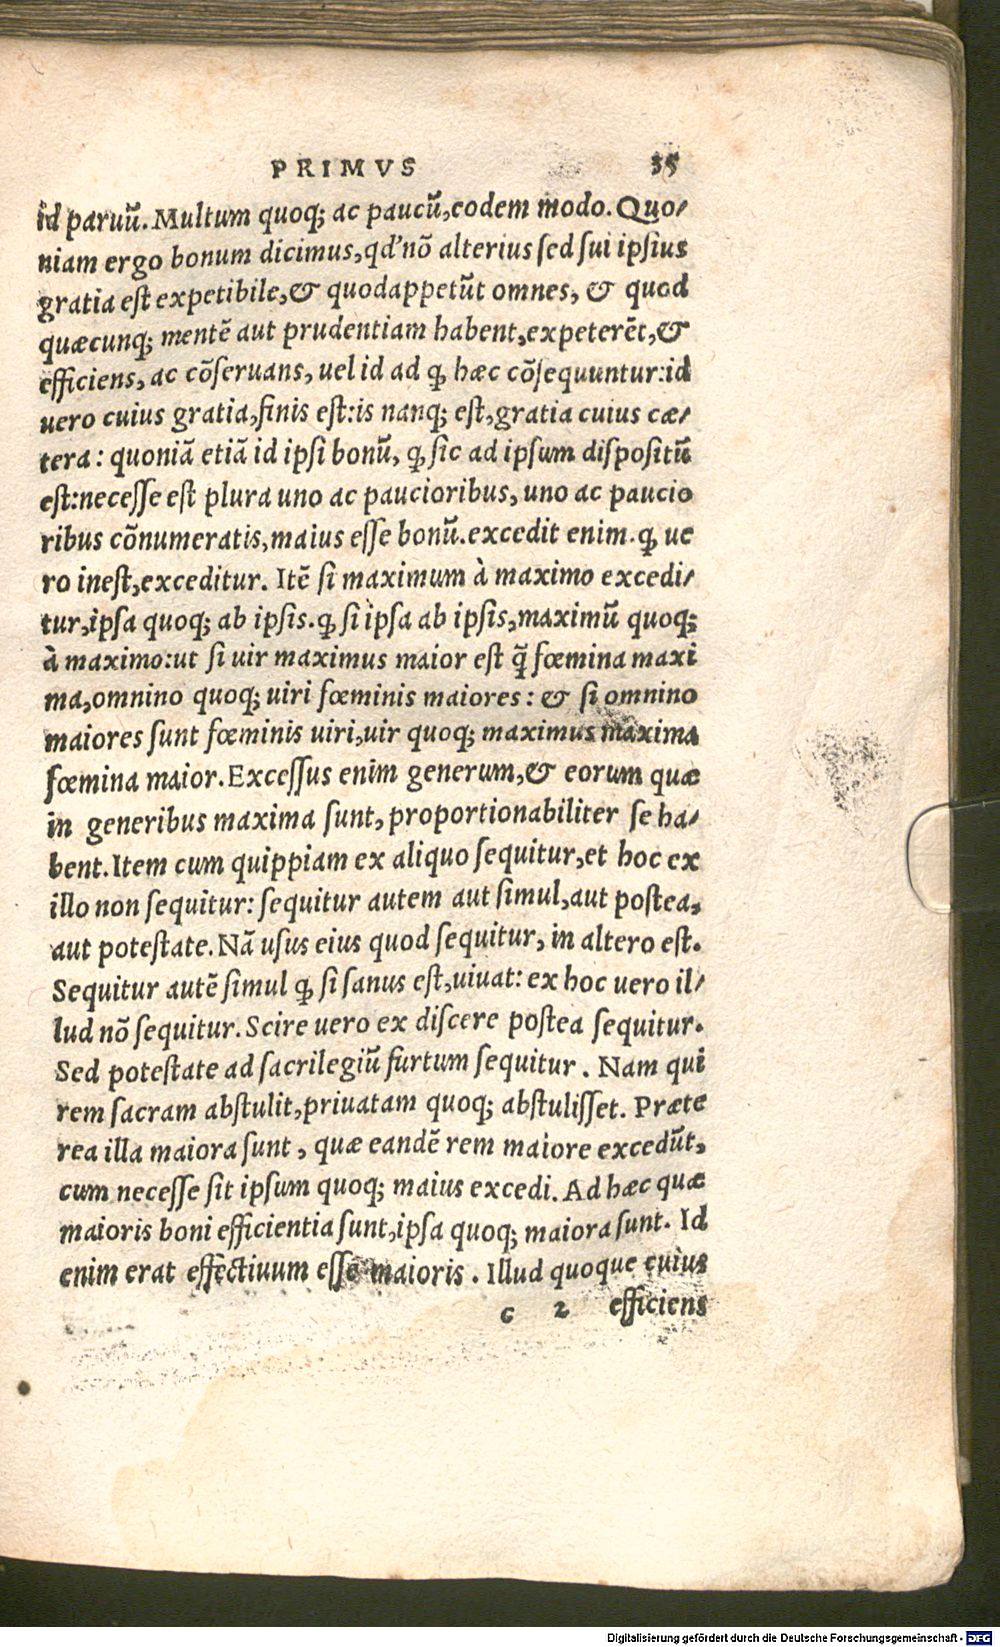 PRIMVS 35
id paruũ. Multum quoq; ac paucũ, eodem modo. Quo/
niam ergo bonum dicimus, qd' nõ alterius sed sui ipsius
gratia est expetibile, & quod appetũt omnes, & quod
quæcunq; mentẽ aut prudentiam habent, expeterẽt, &
efficiens, ac cõseruans, uel id ad ꝙ hæc cõsequuntur: id
uero cuius gratia, finis est: is nanq; est, gratia cuius cæ/
tera: quoniã etiã id ipsi bonũ, ꝙ sic ad ipsum dispositũ
est: necesse est plura uno ac paucioribus, uno ac paucio
ribus cõnumeratis, maius esse bonũ. excedit enim. ꝙ ue
ro inest, exceditur. Itẽ si maximum à maximo excedi/
tur, ipsa quoq; ab ipsis. ꝙ si ipsa ab ipsis, maximũ quoq;
à maximo: ut si uir maximus maior est q̃ fœmina maxi
ma, omnino quoq; uiri fœminis maiores: & si omnino
maiores sunt fœminis uiri, uir quoq; maximus maxima
fœmina maior. Excessus enim generum, & eorum quæ
in generibus maxima sunt, proportionabiliter se ha/
bent. Item cum quippiam ex aliquo sequitur, et hoc ex
illo non sequitur: sequitur autem aut simul, aut postea,
aut potestate. Nã usus eius quod sequitur, in altero est.
Sequitur autẽ simul ꝙ si sanus est, uiuat: ex hoc uero il/
lud nõ sequitur. Scire uero ex discere postea sequitur.
Sed potestate ad sacrilegiũ furtum sequitur. Nam qui
rem sacram abstulit, priuatam quoq; abstulisset. Præte
rea illa maiora sunt, quæ eandẽ rem maiore excedũt,
cum necesse sit ipsum quoq; maius excedi. Ad hæc quæ
maioris boni efficientia sunt, ipsa quoq; maiora sunt. Id
enim erat effectiuum esse maioris. Illud quoque cuius
c 2 efficiens
Digitalisierung gefördert durch die Deutsche Forschungsgemeinschaft - DFG